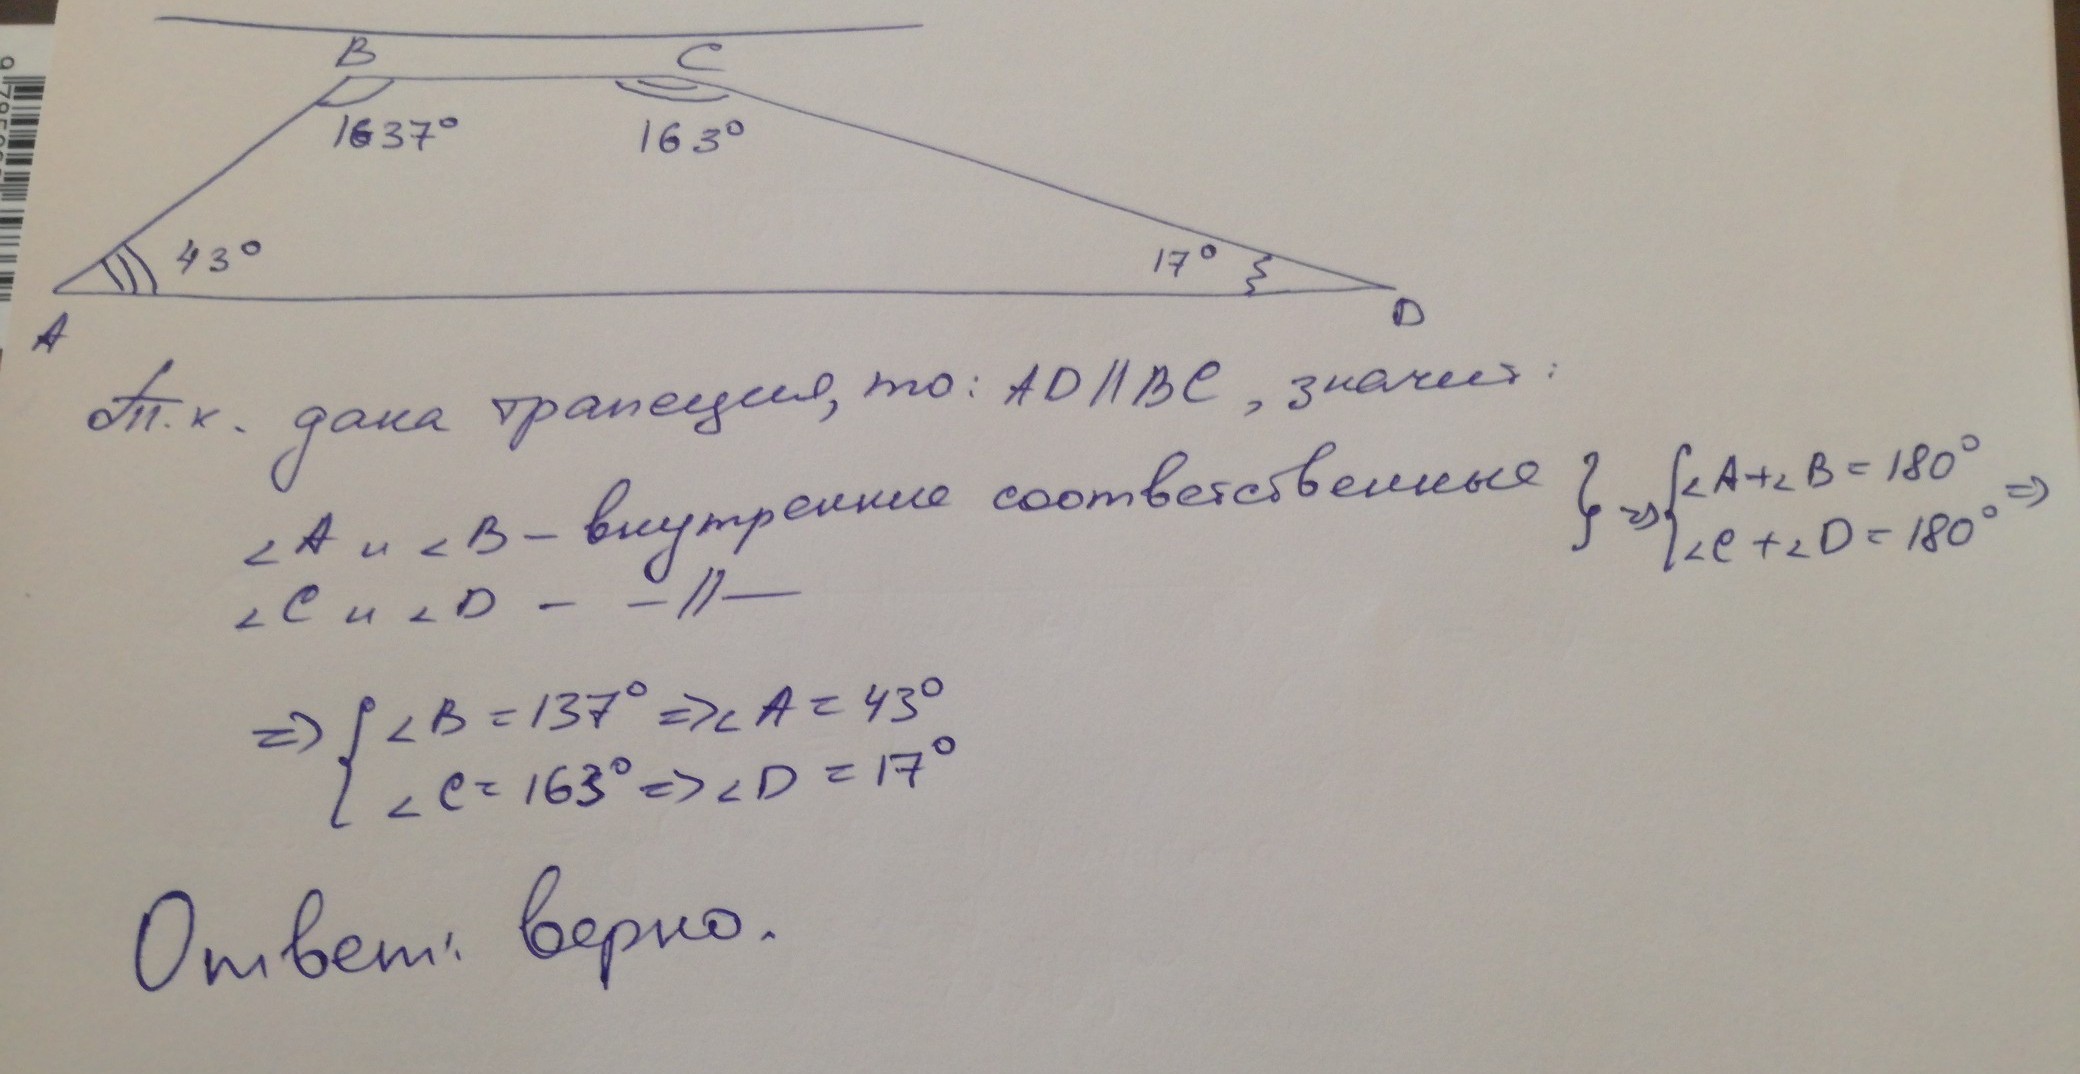 B C
1637° 163°
43° 17°
A D
Т.к. дана трапеция, то: AD∥BC, значит:
∠A и ∠B – внутренние соответственные } => { ∠A+∠B=180°
∠C+∠D=180° =>
∠C и ∠D – –//–
=> { ∠B=137° => ∠A=43°
∠C=163° => ∠D=17°
Ответ: верно.